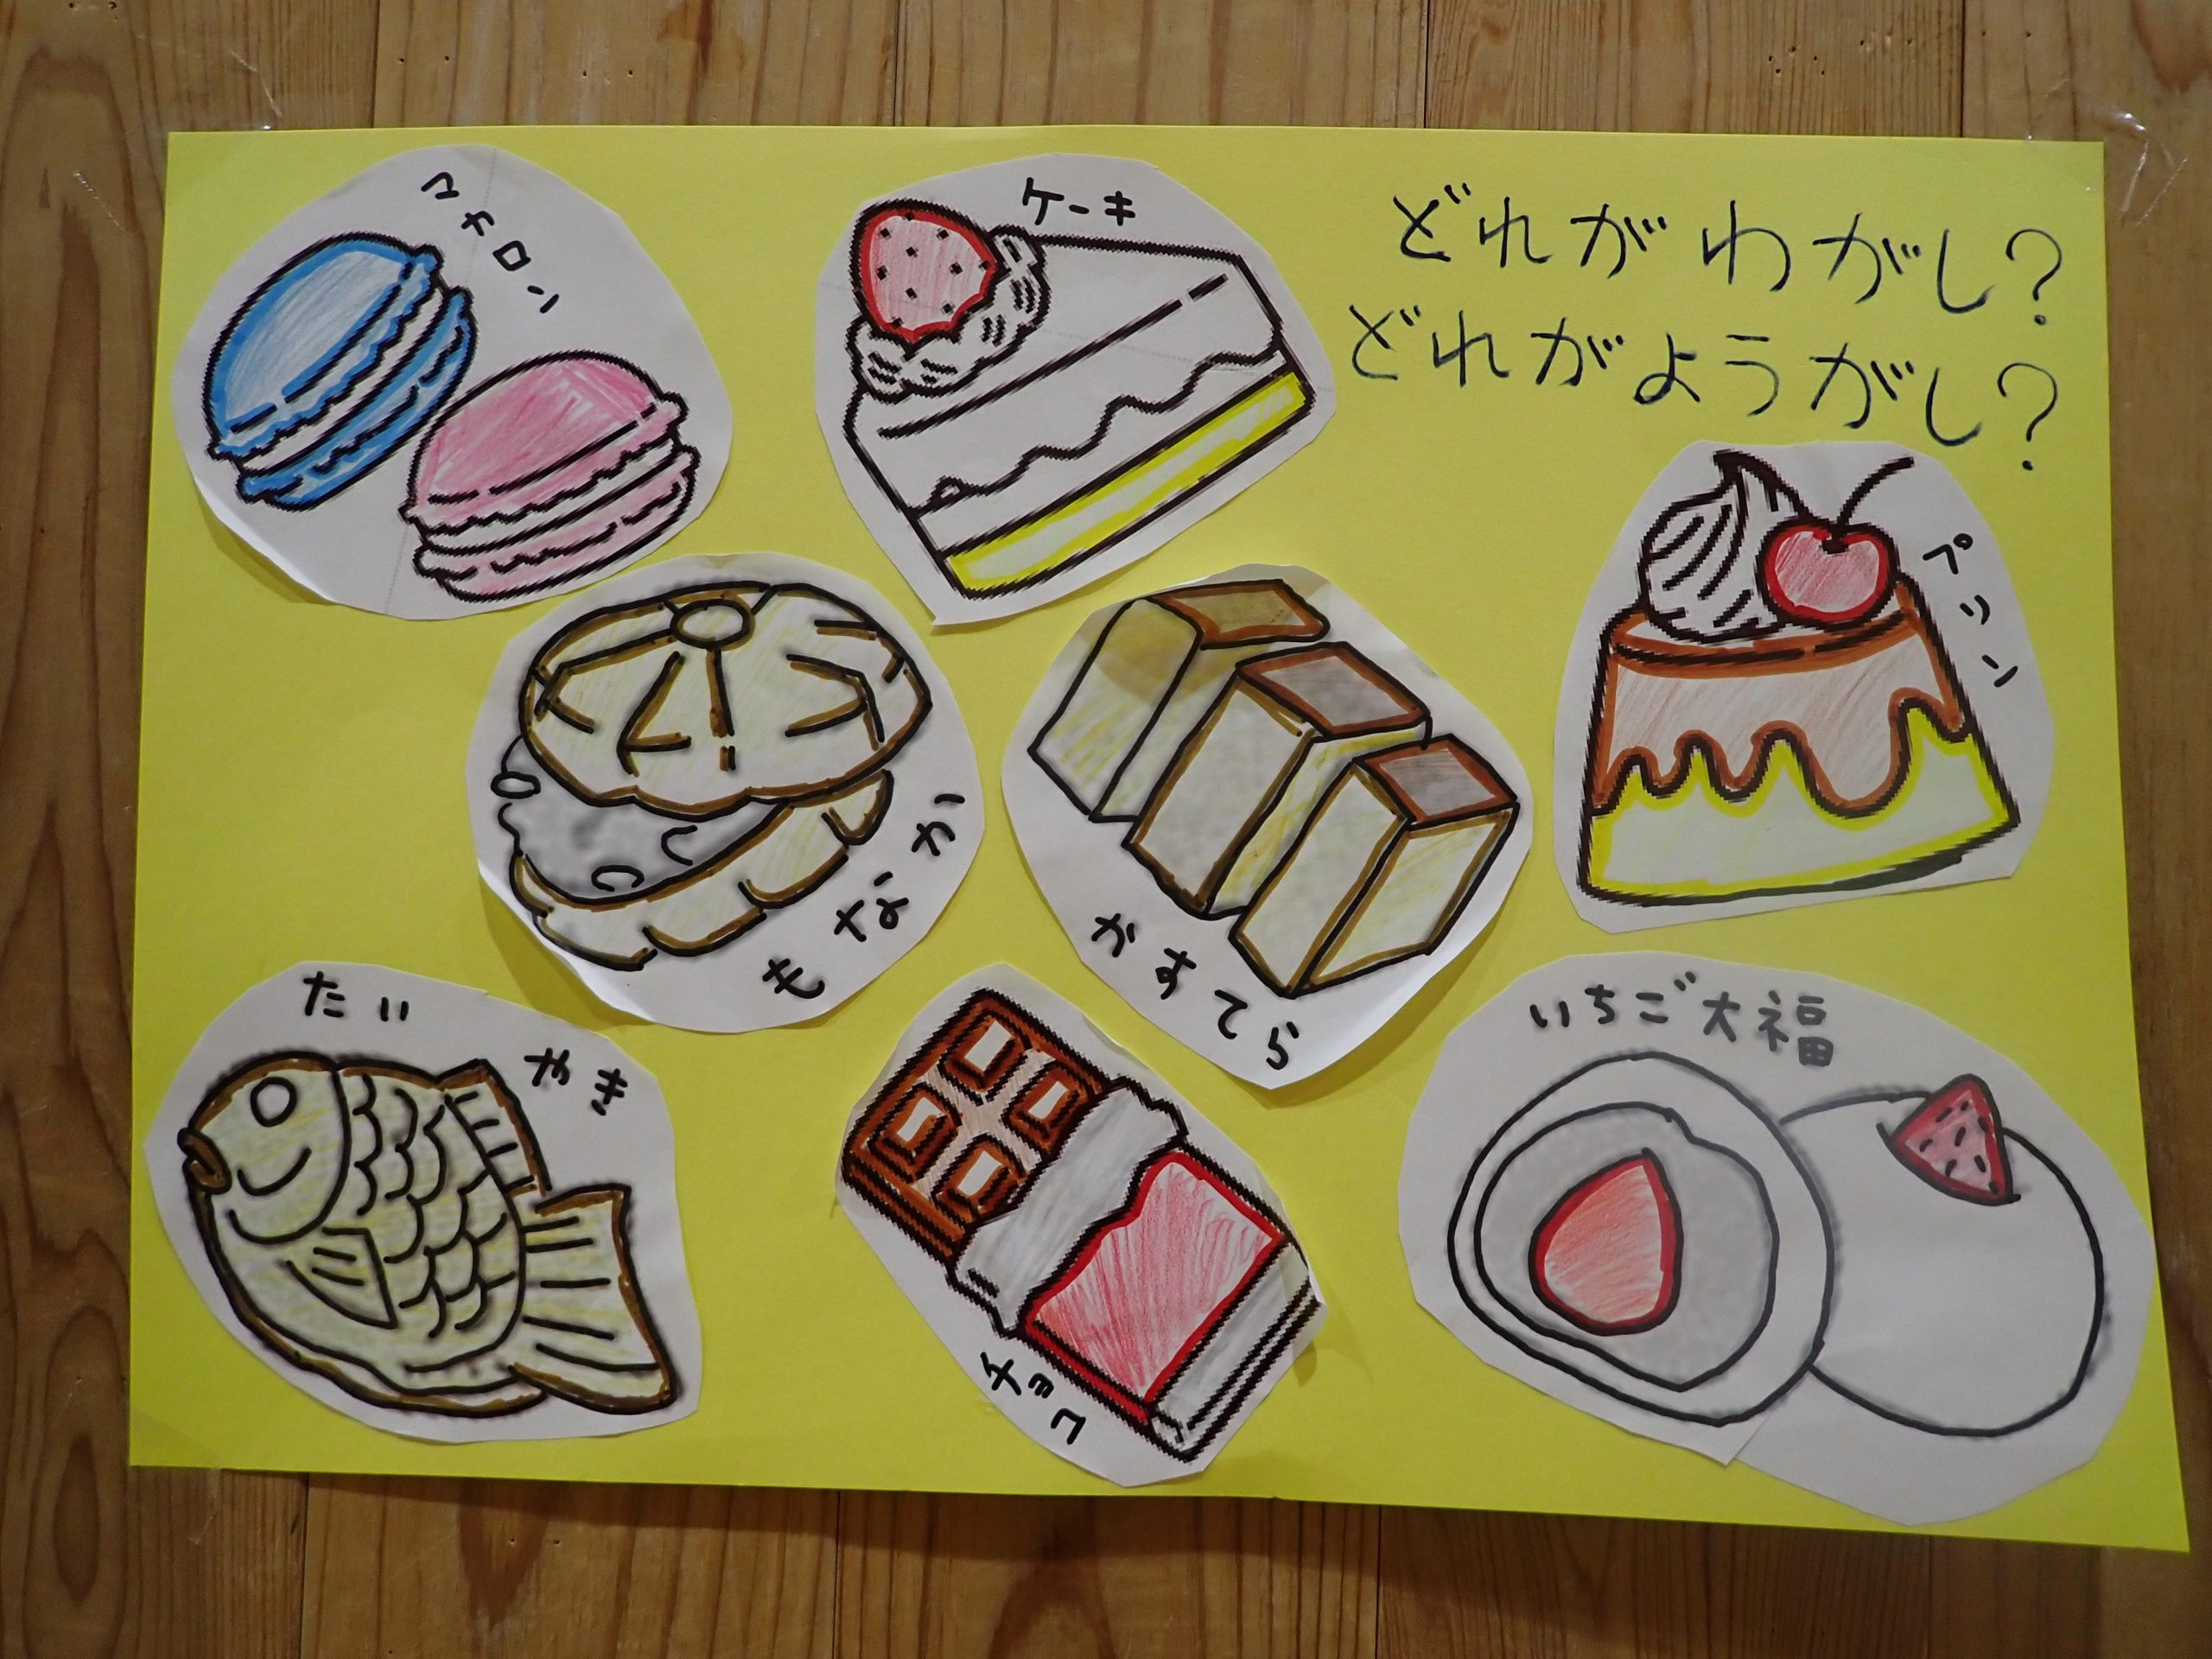 どれがわがし?
どれがようがし?
マカロン
ケーキ
プリン
もなか
かすてら
たいやき
チョコ
いちご大福